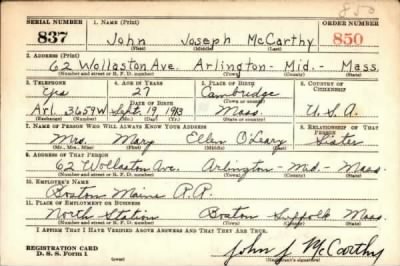 850
SERIAL NUMBER 1. NAME (Print) ORDER NUMBER
837 John Joseph McCarthy 850
(First) (Middle) (Last)
2. ADDRESS (Print)
62 Wollaston Ave. Arlington - Mid. - Mass.
(Number and street or R. F. D. number) (Town) (County) (State)
3. TELEPHONE 4. AGE IN YEARS 5. PLACE OF BIRTH 6. COUNTRY OF CITIZENSHIP
Yes 27 Cambridge
DATE OF BIRTH (Town or county)
Arl. 3659W Sept. 19 1913 Mass. U.S.A.
(Exchange) (Number) (Mo.) (Day) (Yr.) (State or country)
7. NAME OF PERSON WHO WILL ALWAYS KNOW YOUR ADDRESS 8. RELATIONSHIP OF THAT PERSON
Mrs. Mary Ellen O'Leary Sister
(Mr., Mrs., Miss) (First) (Middle) (Last)
9. ADDRESS OF THAT PERSON
62 Wollaston Ave. Arlington - Mid. - Mass.
(Number and street or R. F. D. number) (Town) (County) (State)
10. EMPLOYER'S NAME
Boston Maine R.R.
11. PLACE OF EMPLOYMENT OR BUSINESS
North Station Boston Suffolk Mass.
(Number and street or R. F. D. number) (Town) (County) (State)
I AFFIRM THAT I HAVE VERIFIED ABOVE ANSWERS AND THAT THEY ARE TRUE.
REGISTRATION CARD
D. S. S. Form 1
John J. McCarthy
(Registrant's signature)